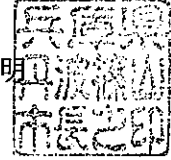 明
兵庫県
丹波篠山
市長之印